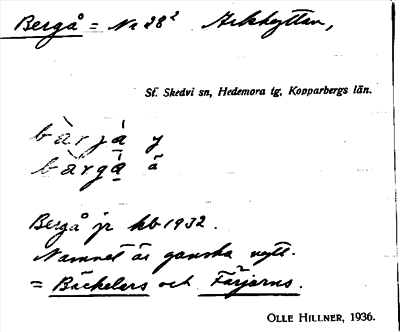 Bergå = Nr 28² Arkhyttan,
St. Skedvi sn, Hedemora tg, Kopparbergs län.
bàrjá y
bàrgá ä
Bergå jr kb 1932.
Namnet är ganska nytt.
= Bäckelers och Färjarns.
OLLE HILLNER, 1936.